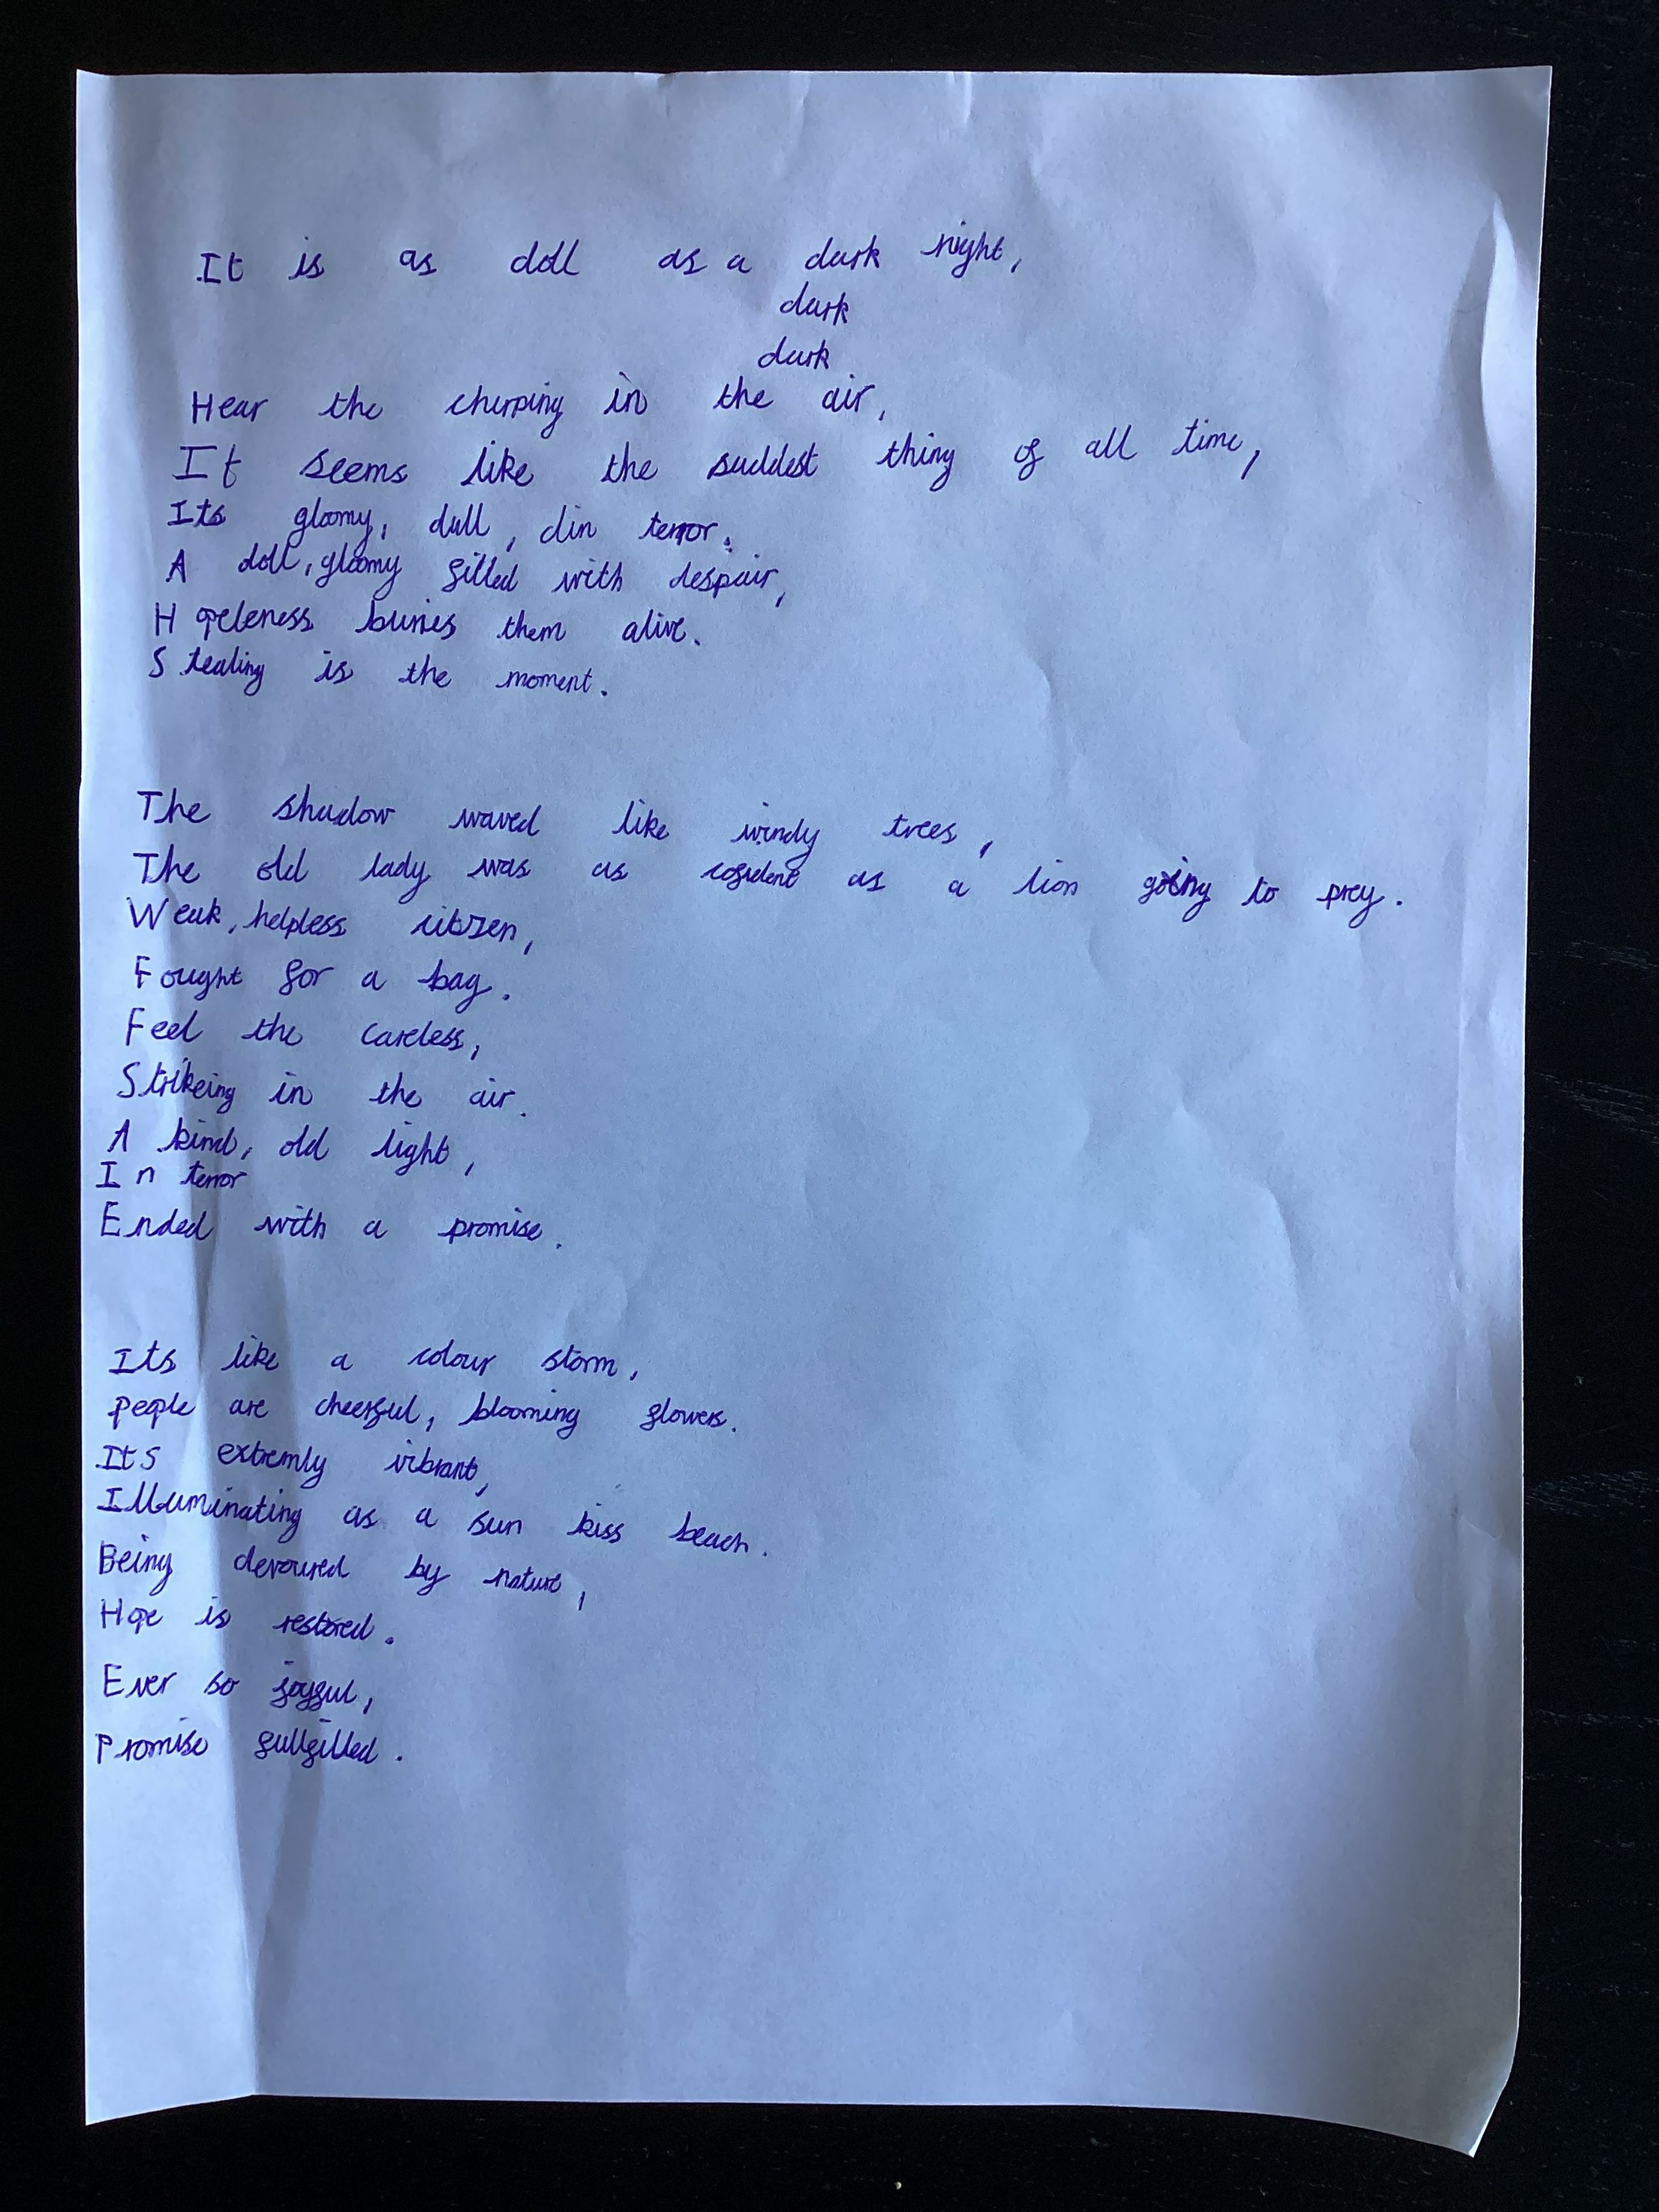 It is as doll as a dark night,
dark
dark
Hear the chirping in the air,
It seems like the saddest thing of all time,
Its gloomy, dull, din terror.
A doll, gloomy filled with despair,
Hopeleness buries them alive.
Stealing is the moment.
The shadow waved like windy trees,
The old lady was as cofident as a lion going to prey.
Weak, helpless citizen,
Fought for a bag.
Feel the careless,
Strikeing in the air.
A kind, old light,
In terror
Ended with a promise.
Its like a colour storm,
people are cheerful, blooming flowers.
Its extremly vibrant,
Illuminating as a sun kiss beach.
Being devoured by nature,
Hope is restored.
Ever so joyful,
Promise fullfilled.